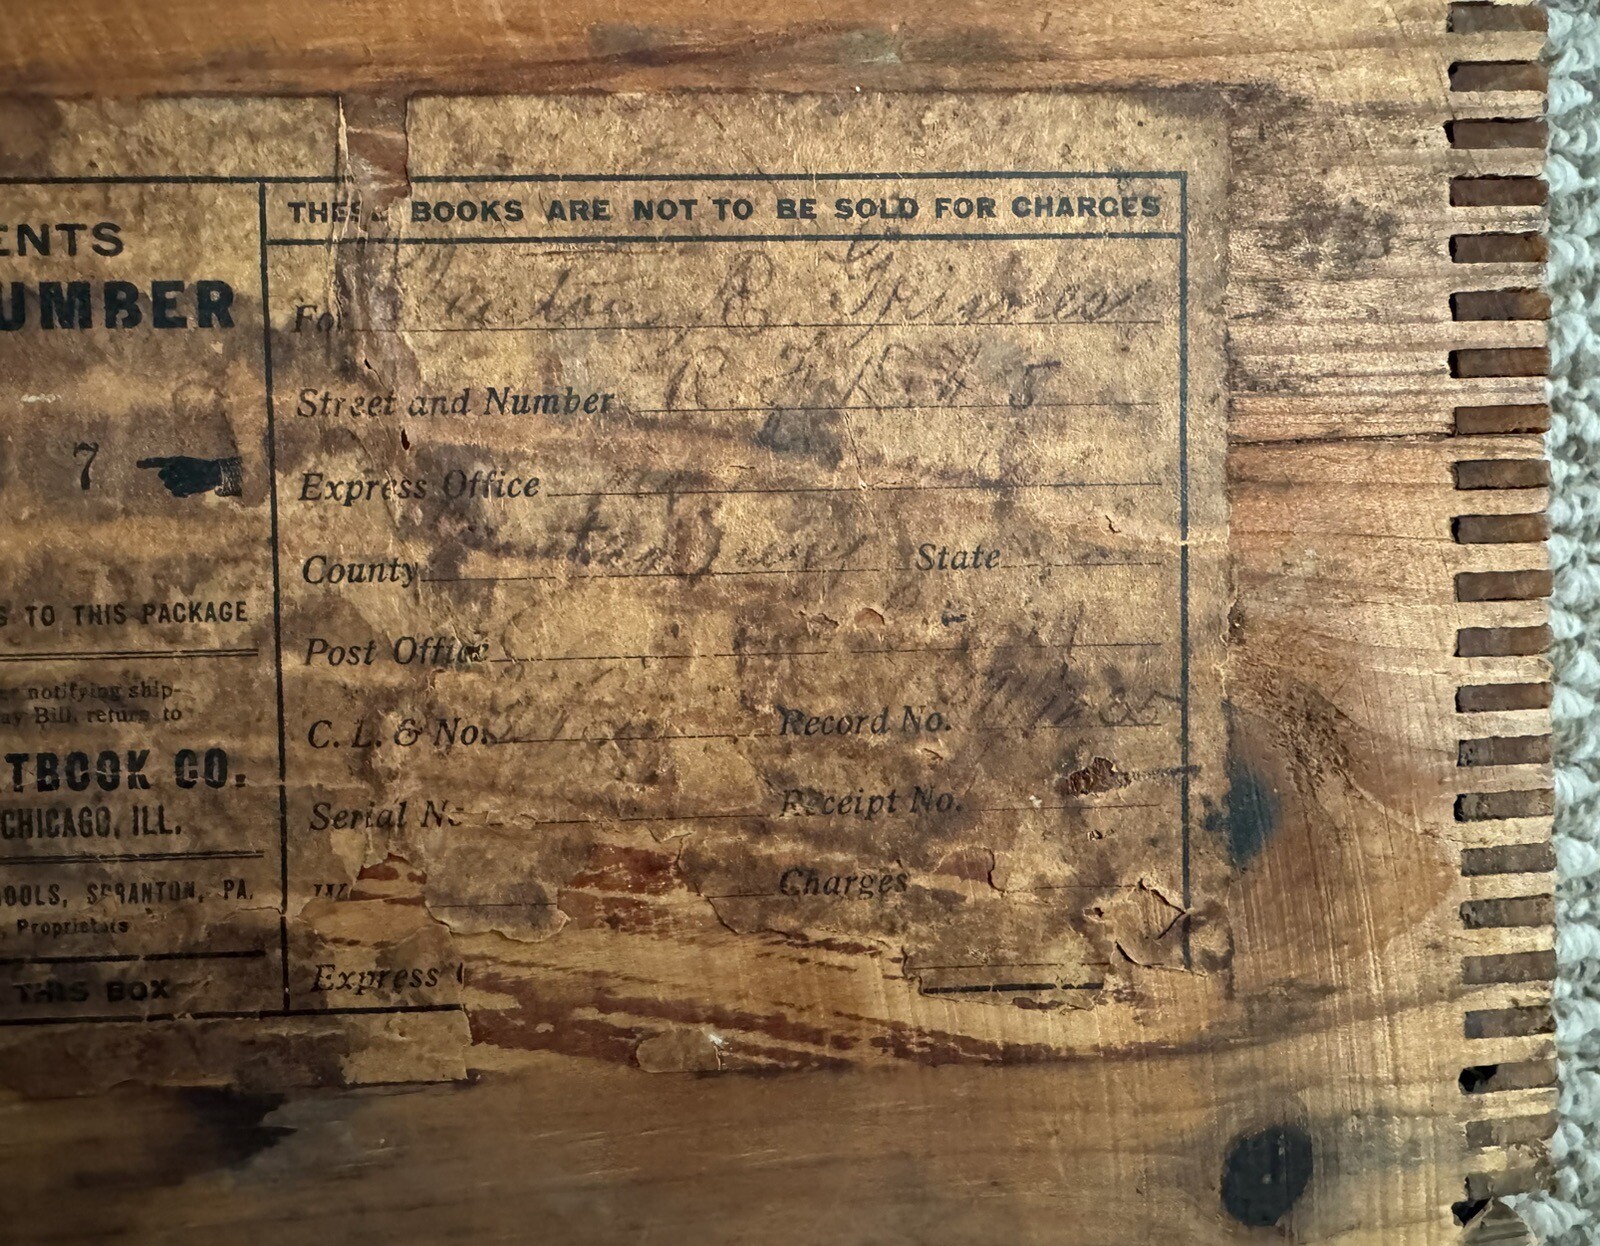 ENTS
UMBER
7
S TO THIS PACKAGE
notifying ship-
ay Bill, return to
TBOOK CO.
CHICAGO, ILL.
OOLS, SCRANTON, PA.
Proprietors
THIS BOX
THESE BOOKS ARE NOT TO BE SOLD FOR CHARGES
For C. Grimes
Street and Number R. F. D. # 5
Express Office
County State
Post Office
C. L. & No. Record No.
Serial No Receipt No.
Charges
Express